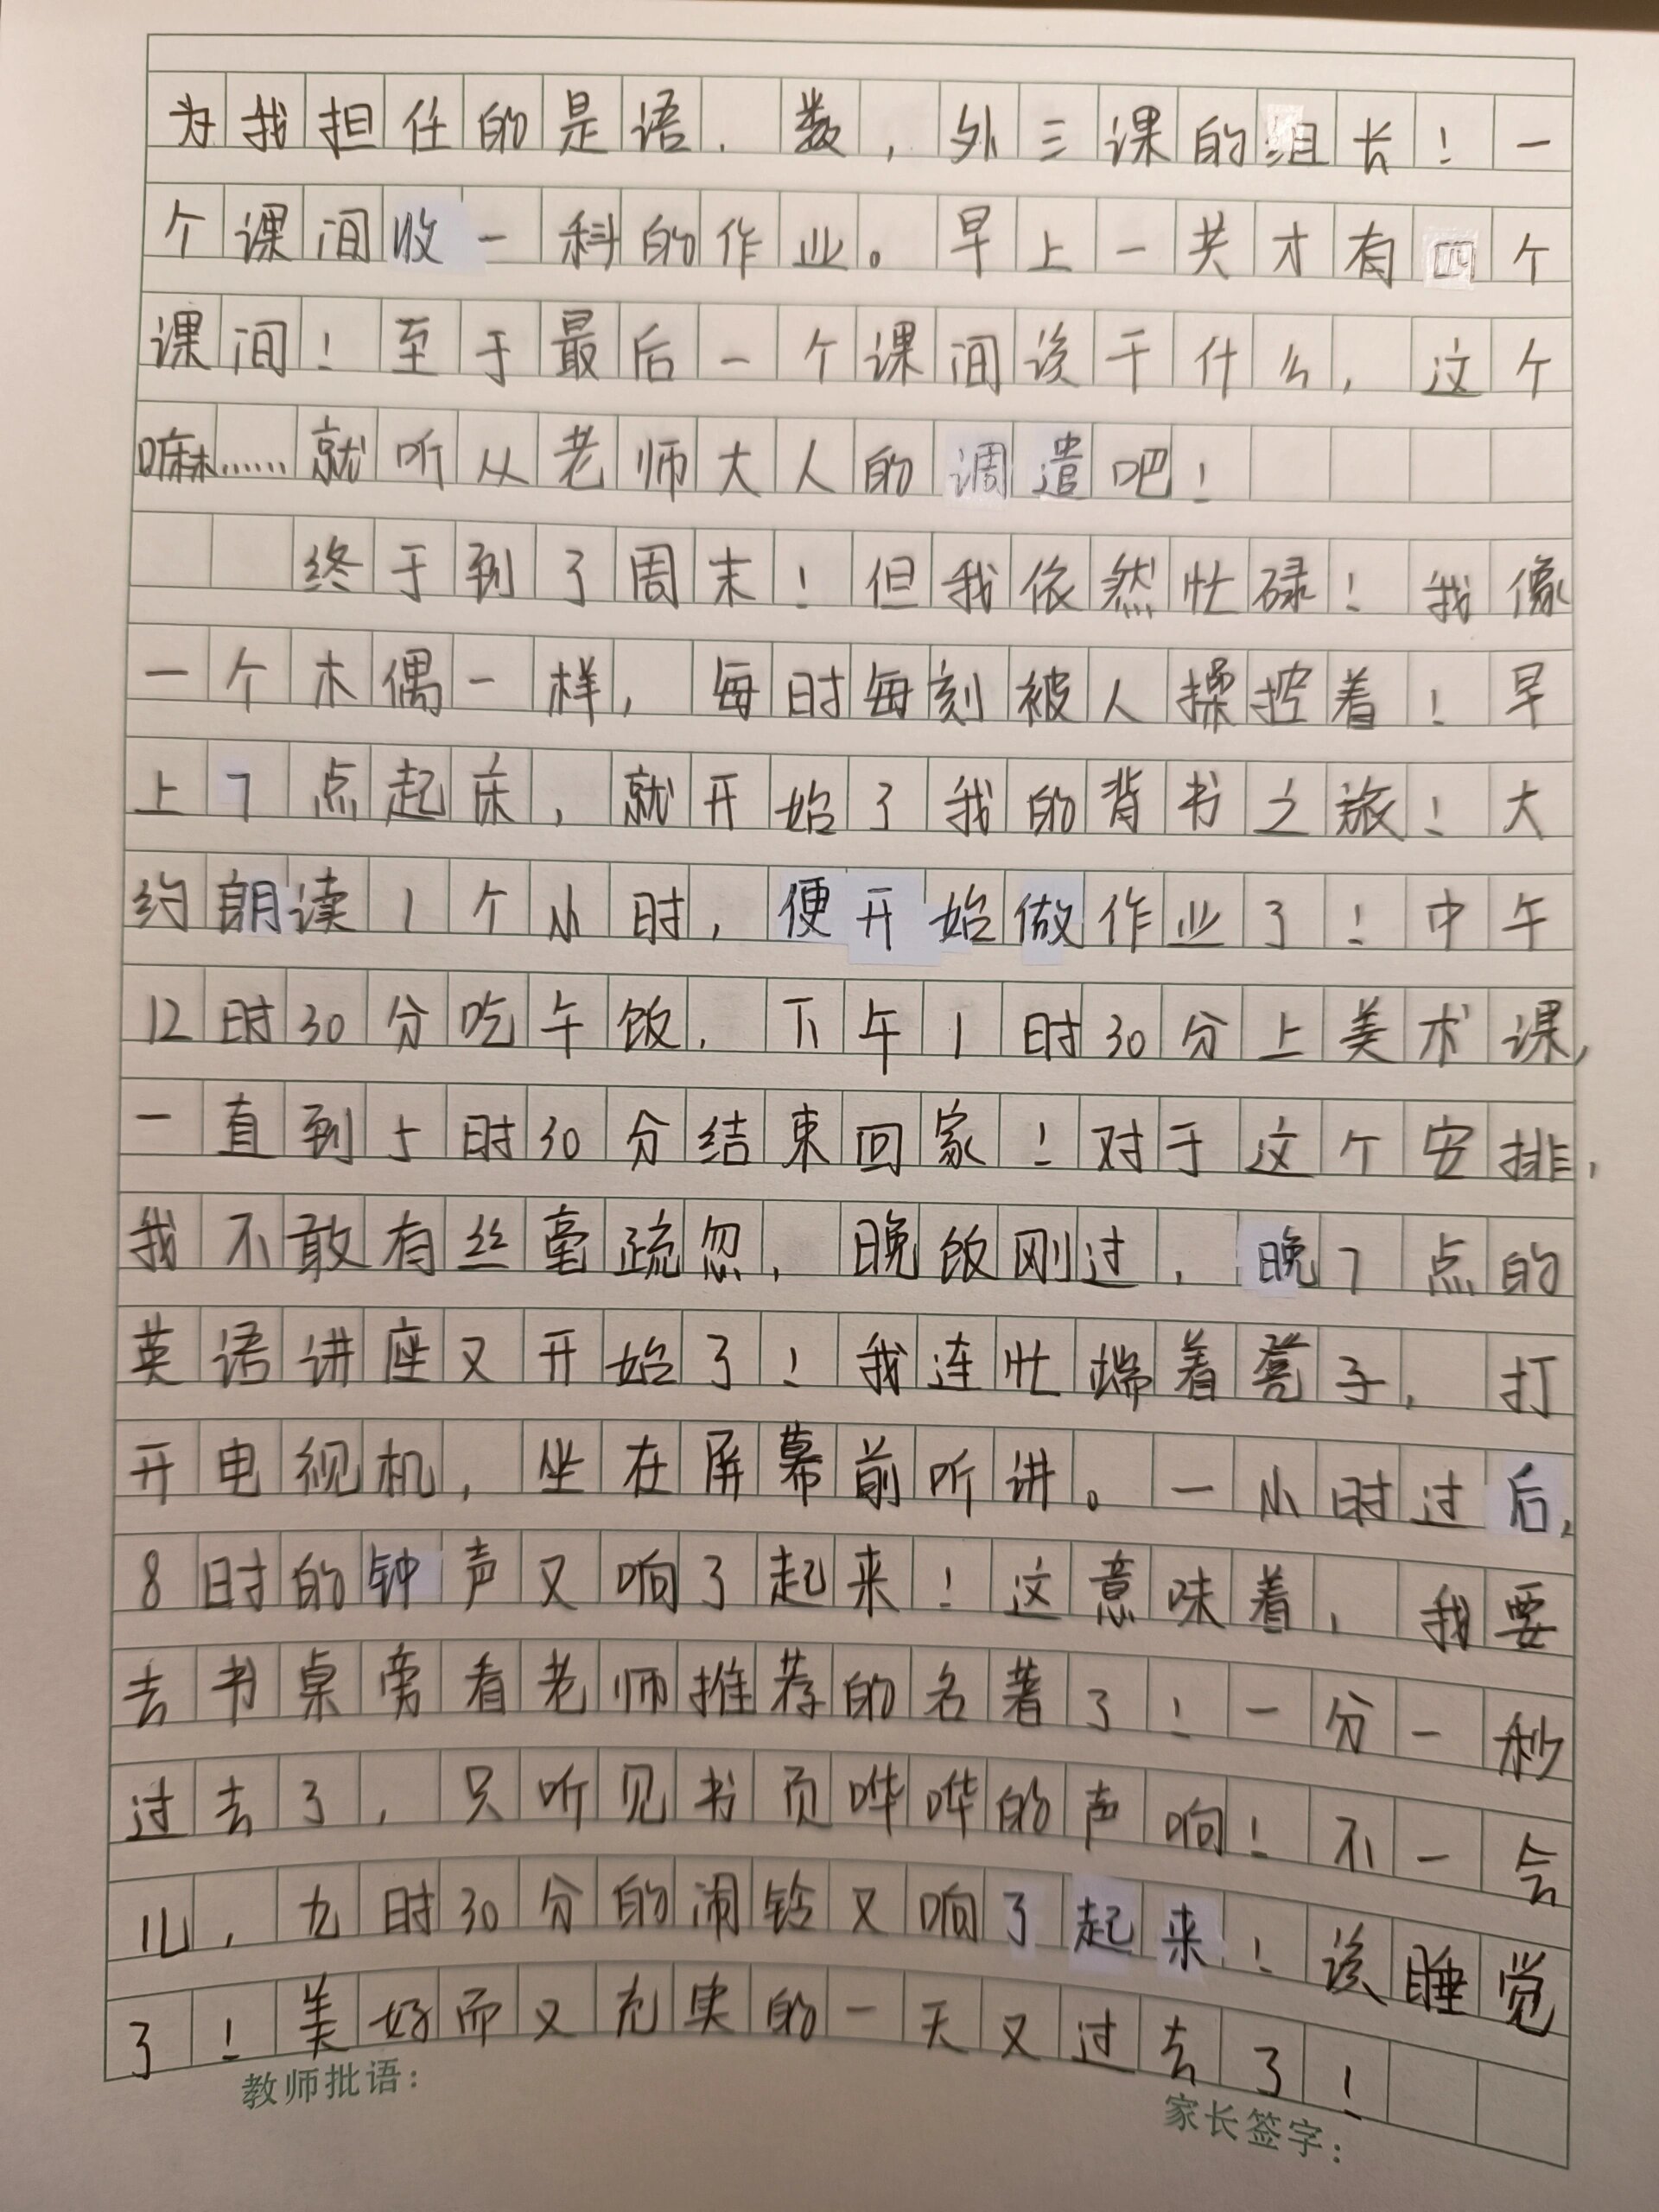 为我担任的是语、数，外三课的组长！一
个课间收一科的作业。早上一共才有四个
课间！至于最后一个课间该干什么，这个
嘛……就听从老师大人的调遣吧！
终于到了周末！但我依然忙碌！我像
一个木偶一样，每时每刻被人操控着！早
上7点起床，就开始了我的背书之旅！大
约朗读1个小时，便开始做作业了！中午
12时30分吃午饭，下午1时30分上美术课，
一直到5时30分结束回家！对于这个安排，
我不敢有丝毫疏忽，晚饭刚过，晚7点的
英语讲座又开始了！我连忙端着凳子，打
开电视机，坐在屏幕前听讲。一小时过后，
8时的钟声又响了起来！这意味着，我要
去书桌旁看老师推荐的名著了！一分一秒
过去了，只听见书页哗哗的声响！不一会
儿，九时30分的闹铃又响了起来！该睡觉
了！美好而又充实的一天又过去了！
教师批语：
家长签字：